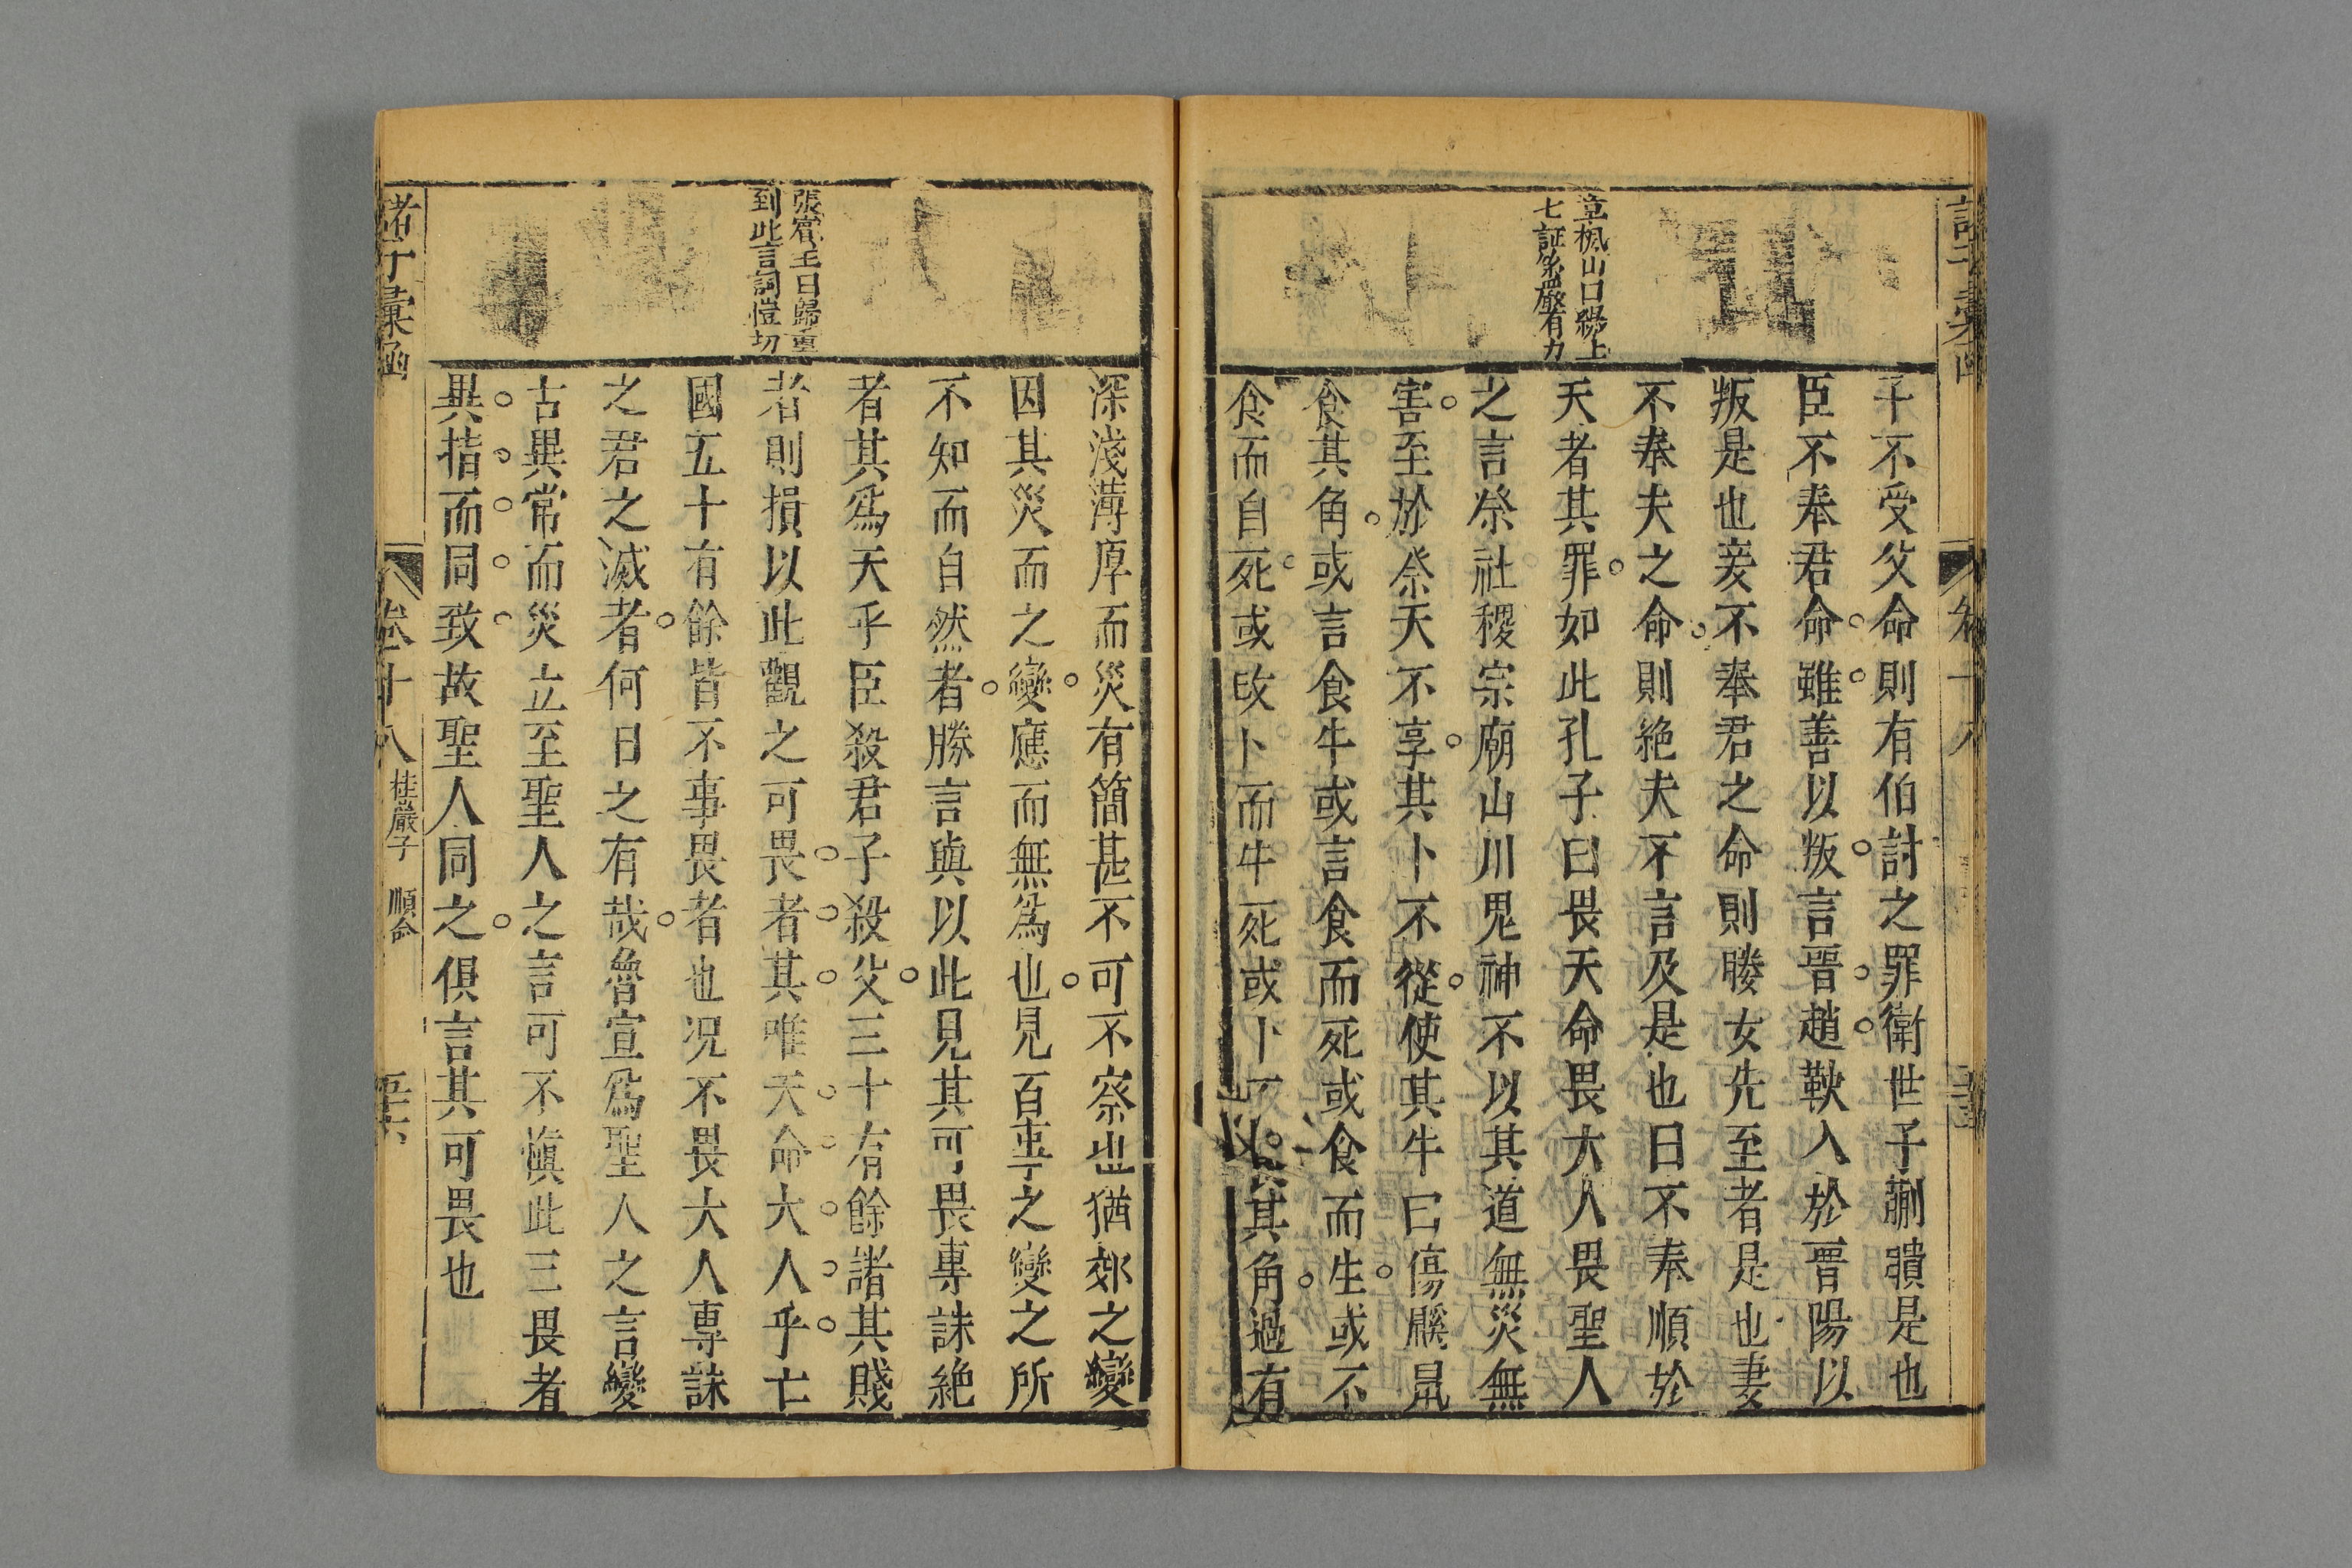 章楓山曰歸上
七証𠃔嚴有力
子不受父命則有伯討之罪衛世子蒯聵是也
臣不奉君命雖善以叛言晉趙鞅入於晉陽以
叛是也妾不奉君之命則媵女先至者是也妻
不奉夫之命則絶夫不言及是也曰不奉順於
天者其罪如此孔子曰畏天命畏大人畏聖人
之言祭社稷宗廟山川鬼神不以其道無災無
害至於祭天不享其卜不從使其牛口傷鼷鼠
食其角或言食牛或言食而死或食而生或不
食而自死或改卜而牛死或卜而食其角過有
張賓王曰歸重
到此言詞愷切
深淺薄厚而災有簡甚不可不察也猶郊之變
因其災而之變應而無為也見百事之變之所
不知而自然者勝言與以此見其可畏專誅絶
者其為天乎臣殺君子殺父三十有餘諸其賤
者則損以此觀之可畏者其唯天命大人乎亡
國五十有餘皆不事畏者也况不畏大人專誅
之君之滅者何日之有哉魯宣為聖人之言變
古異常而災立至聖人之言可不慎此三畏者
異指而同致故聖人同之俱言其可畏也
諸子彙函
卷十八
桂巖子 順命